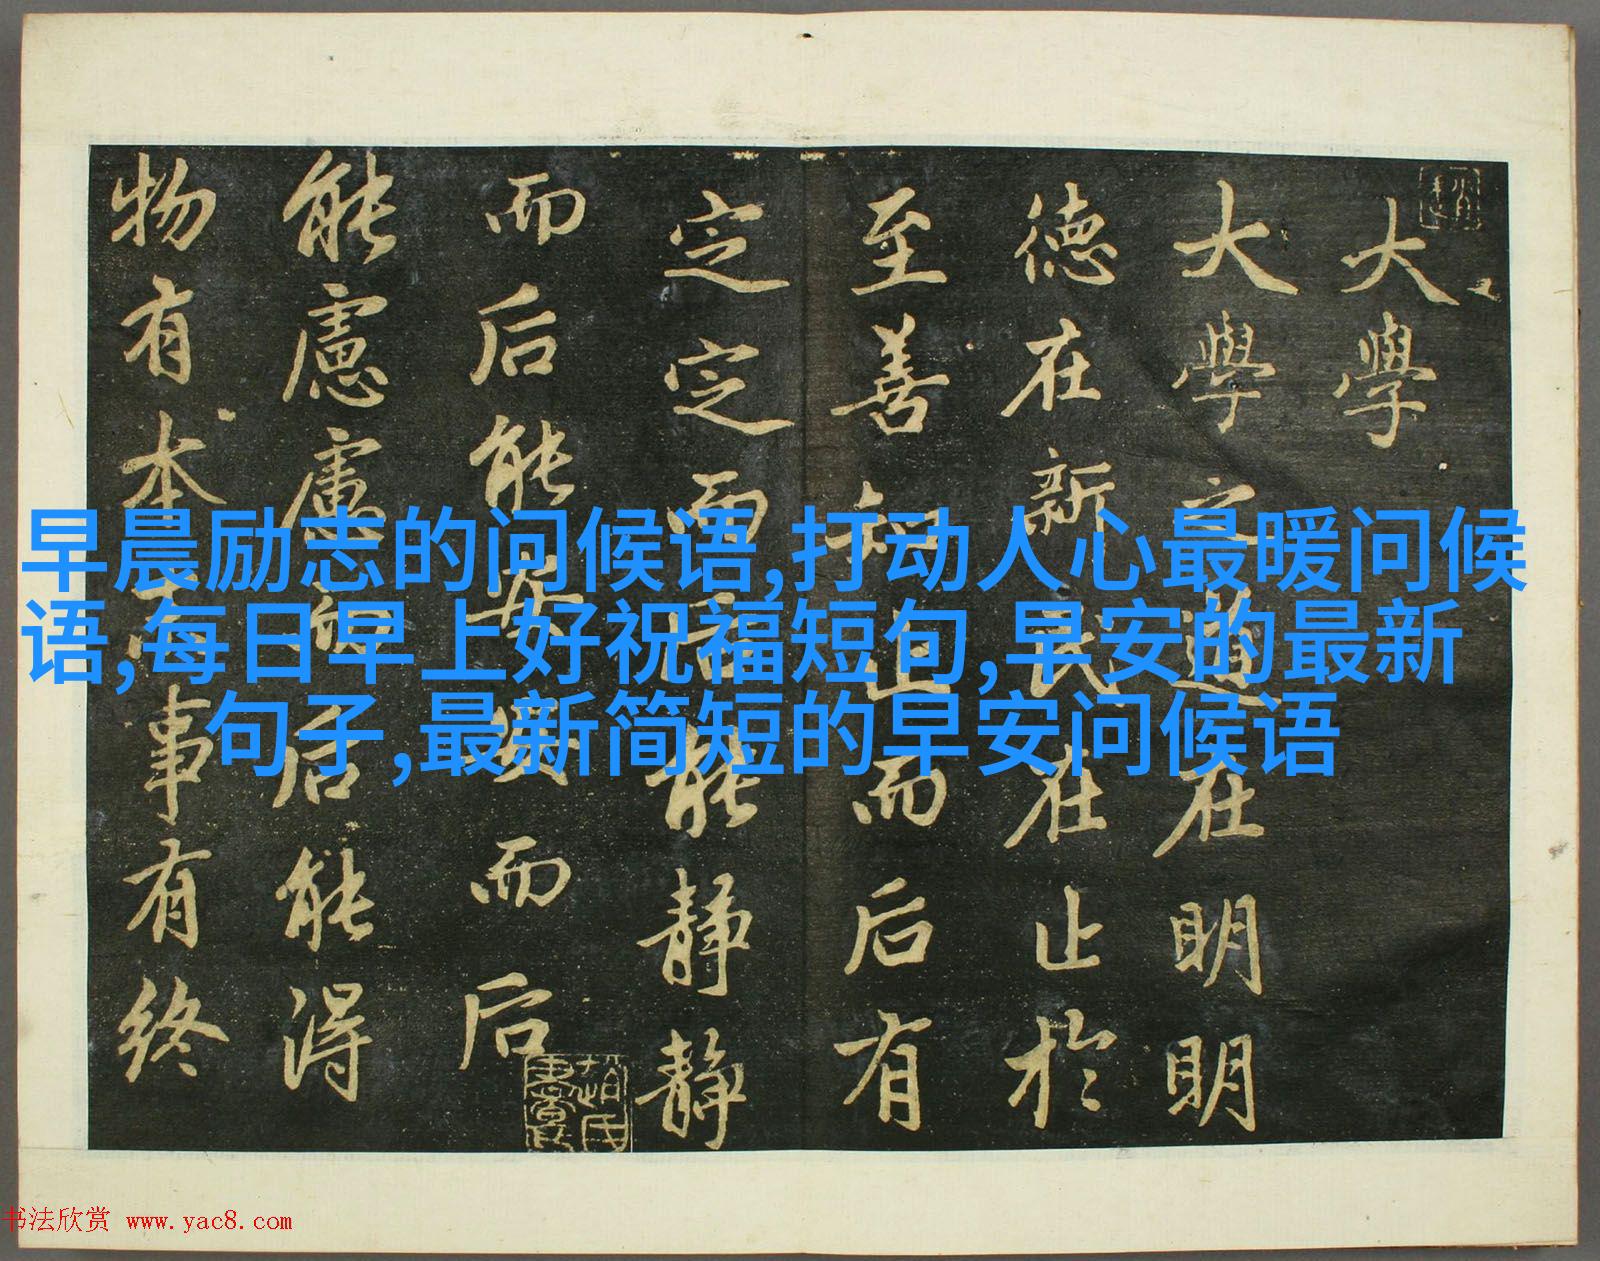 大學
大學之道在明明
德在新民在止於
至善知止而后有
定定而后能静静
而后能安安而后
能慮慮而后能得
物有本末事有終
早晨励志的问候语,打动人心最暖问候
语,每日早上好祝福短句,早安的最新
句子,最新简短的早安问候语
书法欣赏 www.yac8.com